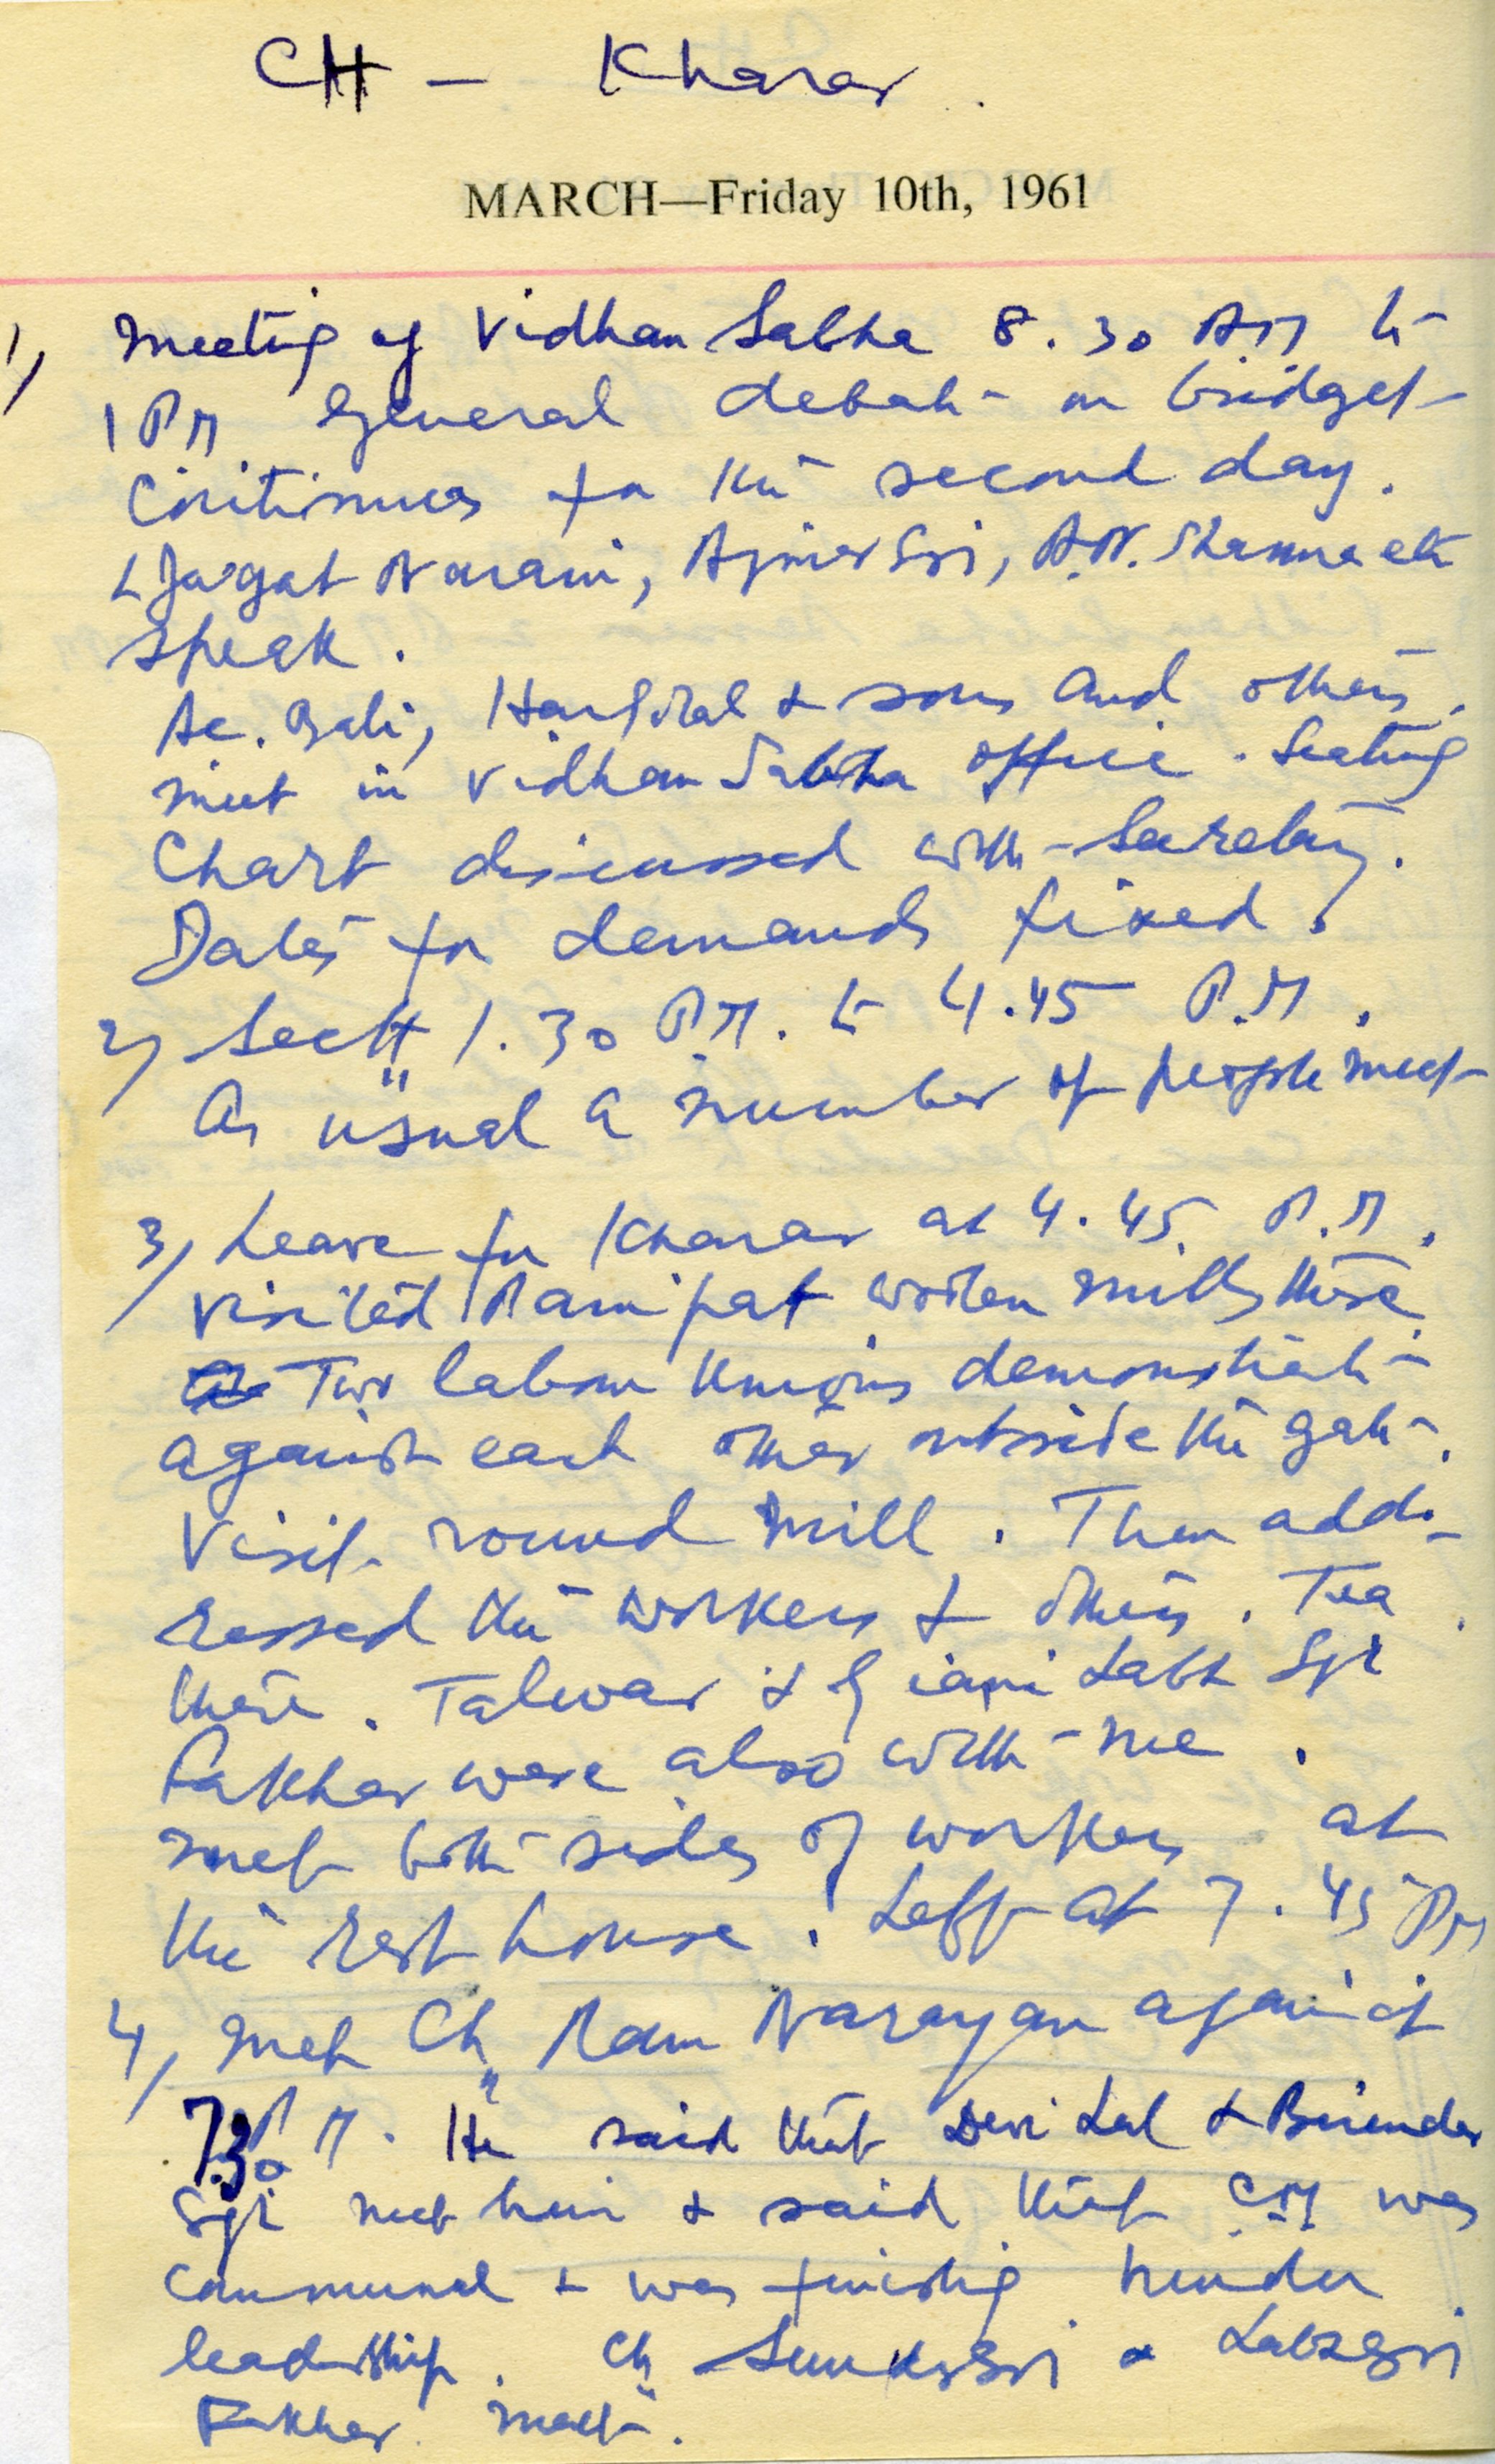 CH - Kharar.
MARCH—Friday 10th, 1961
1) Meeting of Vidhan Sabha 8.30 AM to
1 PM General debate on budget
Continues for the second day.
L Jagat Narain, A.N. Sharma etc
speak.
Ac. Bali, & sons and others
meet in Vidhan Sabha office. Seating
Chart discussed with Secretary.
Dates for demands fixed.
2) Sectt 1.30 P.M. to 4.45 P.M.
As usual a number of people meet
3) Leave for Kharar at 4.45 P.M.
Visited Panipat woolen mills there.
Two labour Unions demonstrate
against each other outside the gate.
Visit round Mill. Then add-
ressed the workers & others. Tea
there. Talwar & Giani Labh Sgh
Fakhar were also with me.
Met both sides of workers at
the rest house. Left at 7.45 PM
4) Met Ch Ram Narayan again at
7.30 P.M. He said that Devi Lal & Birender
Sgh met him & said that C.M. was
Communal & was finishing hindu
leadership. Ch &
Fakhar meet.